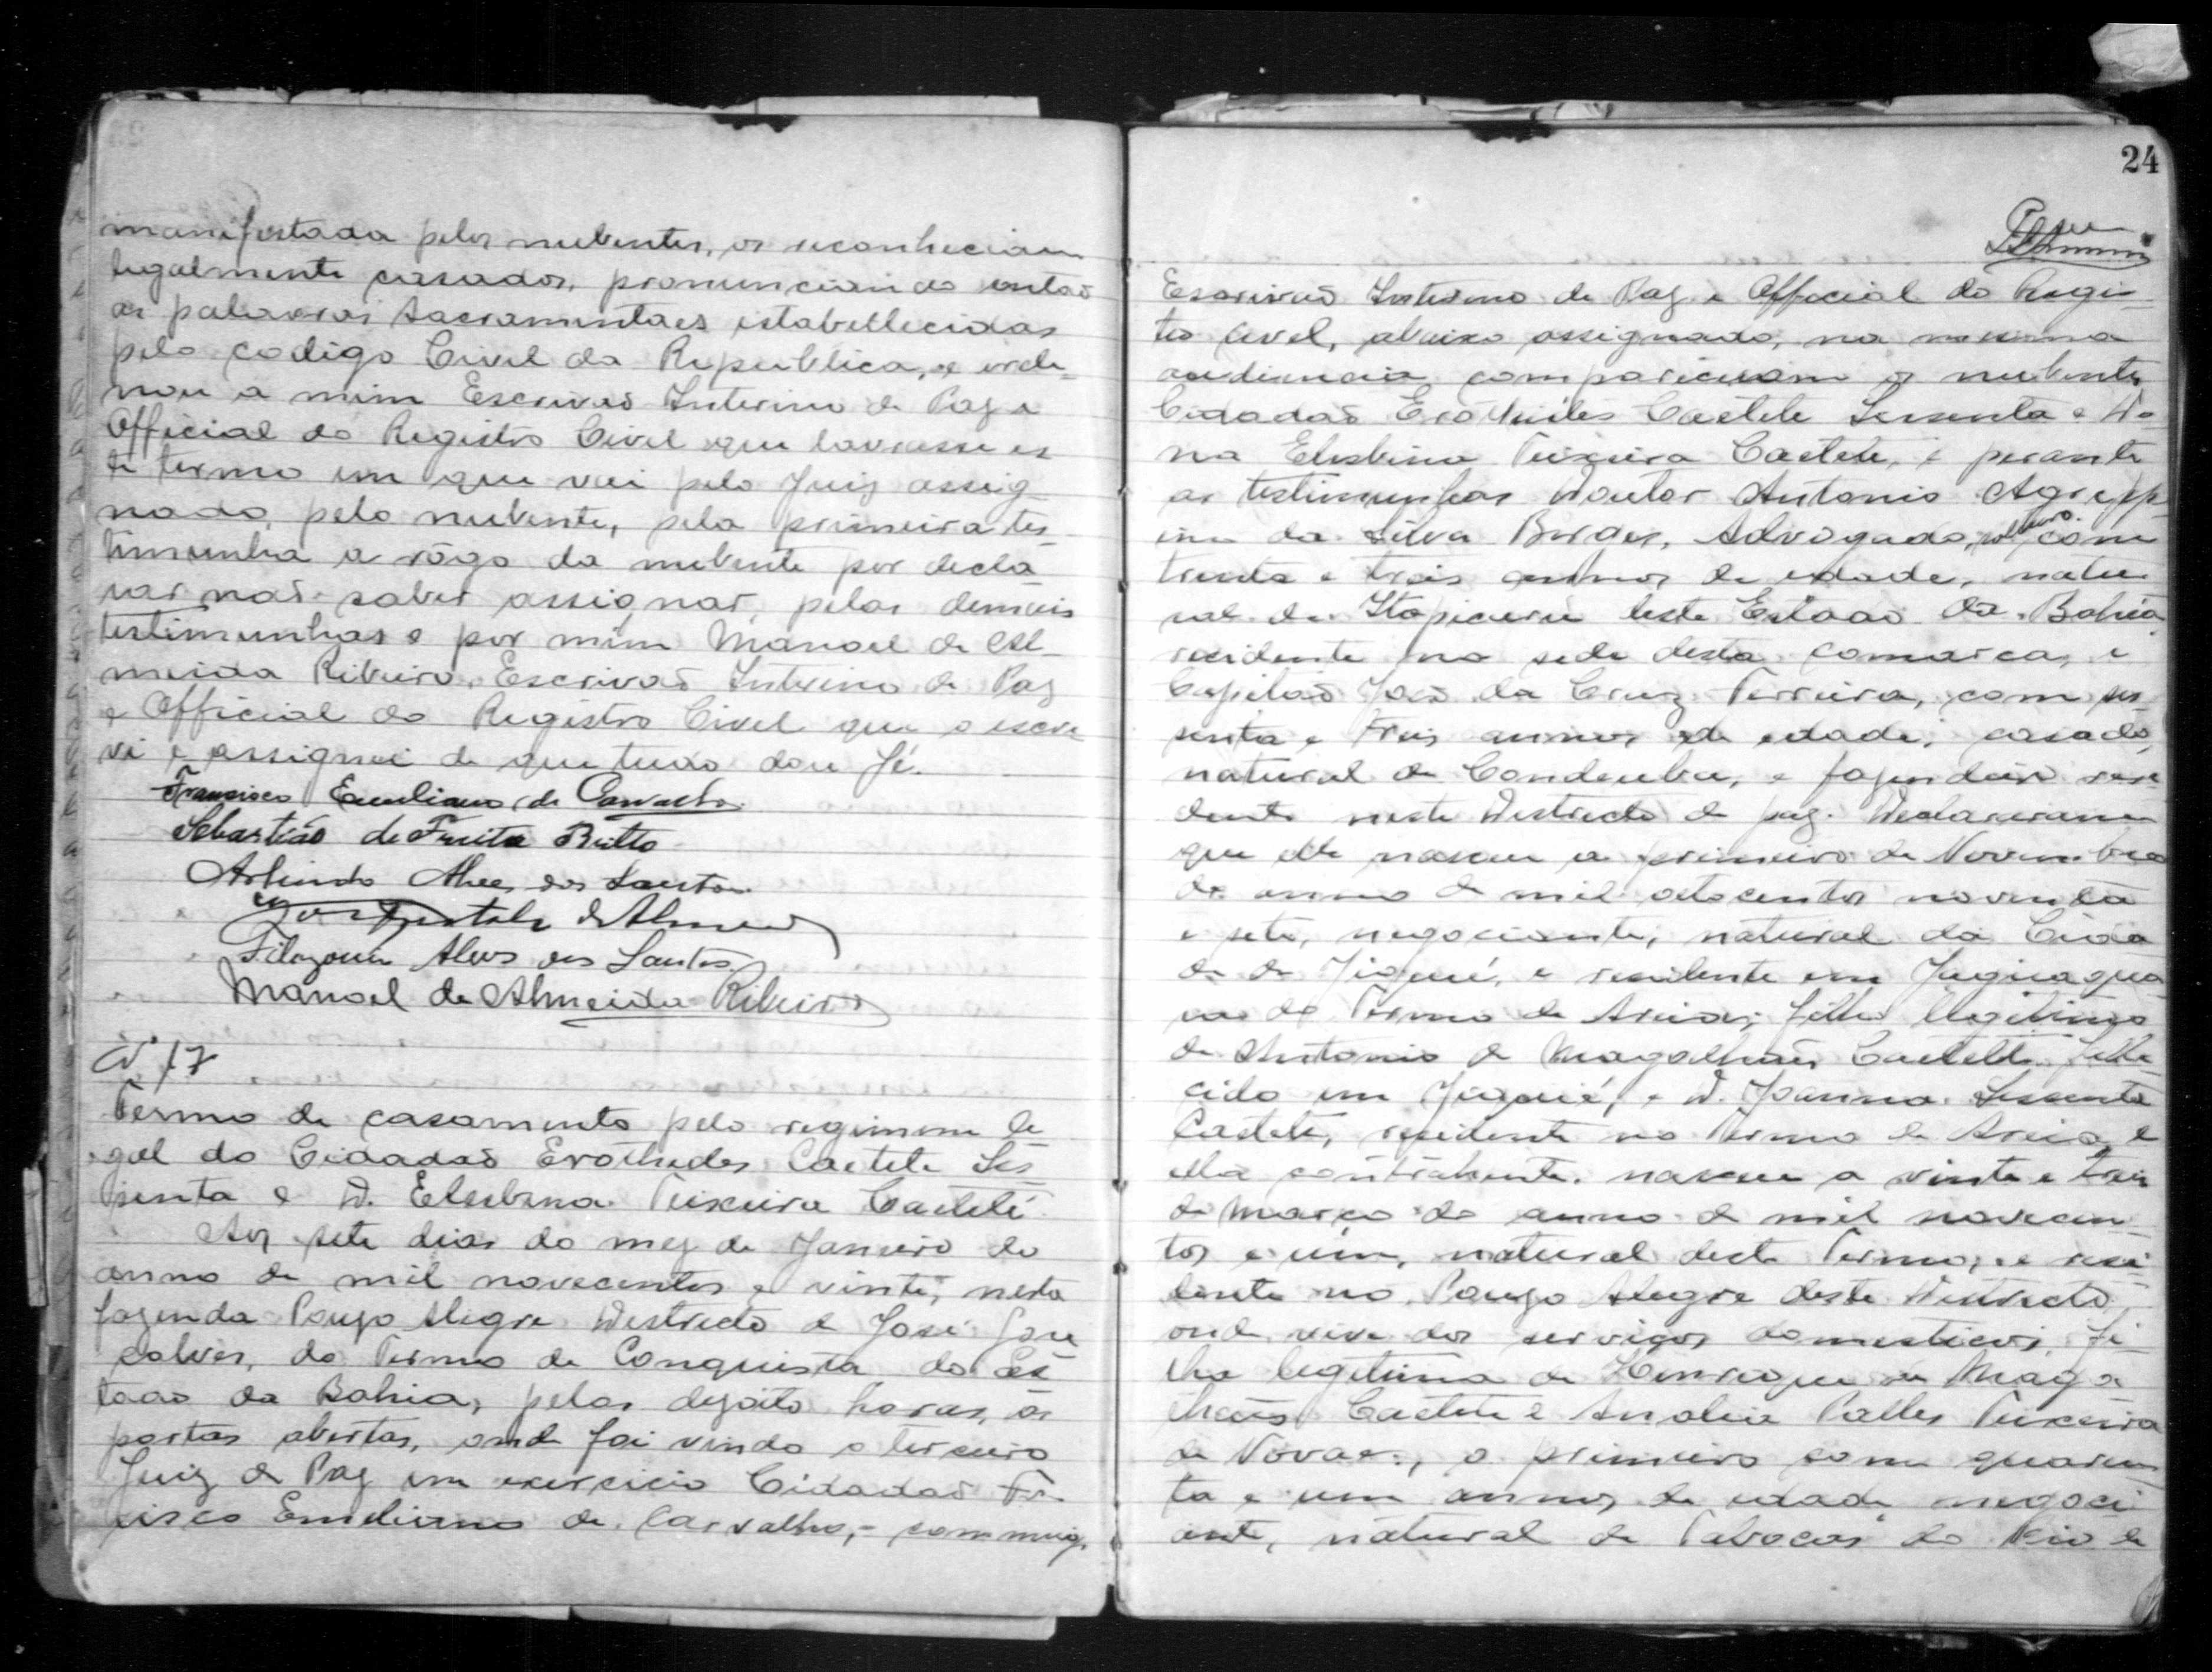 manifestada pelos nubentes, os reconheciam
legalmente casados, pronunciando então
as palavras Sacramentaes istabellecidas
pelo codigo Civel da Republica, e orde-
nou a mim Escrivaõ Interino de Paz e
Official do Registro Civel que lavrasse es
te termo em que vai pelo Juiz assig-
nado, pelo nubente, pela primeira tes-
timunha a rôgo da nubente por decla-
rar naõ saber assignar, pelas demais
testimunhas e por mim Manoel de Al-
meida Ribeiro, Escrivaõ Interino de Paz
e Official do Registro Civel que o escre
vi e assignei de que tudo dou fé.
Francisco Emiliano de Carvalho
Sebastião de Freita Britto
Arlindo Alves dos Santos
de Almeida
Filogonio Alves dos Santos
Manoel de Almeida Ribeiro
Nº 17
Termo de casamento pelo regimem le
gal do Cidadaõ Erothides Caeteté Ses
senta e D. Elesbina Teixeira Caeteté
Aos sete dias do mez de Janeiro do
anno de mil novecentos e vinte, nesta
fazenda Pouzo Alegre Destricto de José Gon
çalves, do Termo de Conquista do Es
tado da Bahia, pelas dezoito horas, ás
portas abertas, onde foi vindo o terceiro
Juiz de Paz em exercicio Cidadaõ Fr
cisco Emiliano de Carvalho, commig.
24
Escrivaõ Interino de Paz e Official do Regis-
tro Civel, abaixo assignado, na mesma
audiencia compareceram os nubentes
Cidadaõ Erothides Caeteté Sessenta e Do
na Elesbina Teixeira Caeteté, e perante
as testimunhas Doutor Antonio Agripp-
ino da Silva Borges, Advogado, solteiro. com
trenta e trais annos de edade, natu
ral de Itapicurú deste Estado da Bahia
residente na sede desta comarca, e
Capitaõ Joaõ da Cruz Ferreira, com ses
senta e treis annos de edade, casado,
natural de Condeuba, e fazendeiro resi
dente neste Destricto de paz. Declararam
que elle nasceu a primeiro de Novembro
do anno de mil oitocentos noventa
e sete, negociante, natural da Cida
de de Jiquié, e residente em Jaguaqua
ra do Termo de Areia; filho legitimo
de Antonio de Magalhaẽs Caeteté falle
cido em Jiquié, e D. Joanna Sessenta
Caeteté, residente no Termo de Areia, e
ella contrahente. nasceu a vinte e treis
de Março do anno de mil novecen
tos e um, natural deste Termo, e resi
dente no Pouzo Alegre deste Destricto,
onde vive dos serviços domesticos, fi
lha legitima de Henrique de Maga
lhaẽs Caeteté e Analia Teixeira
de Novaes, o primeiro com quaren
ta e um annos de edade negoci
ante, natural de Tabocas do Rio de